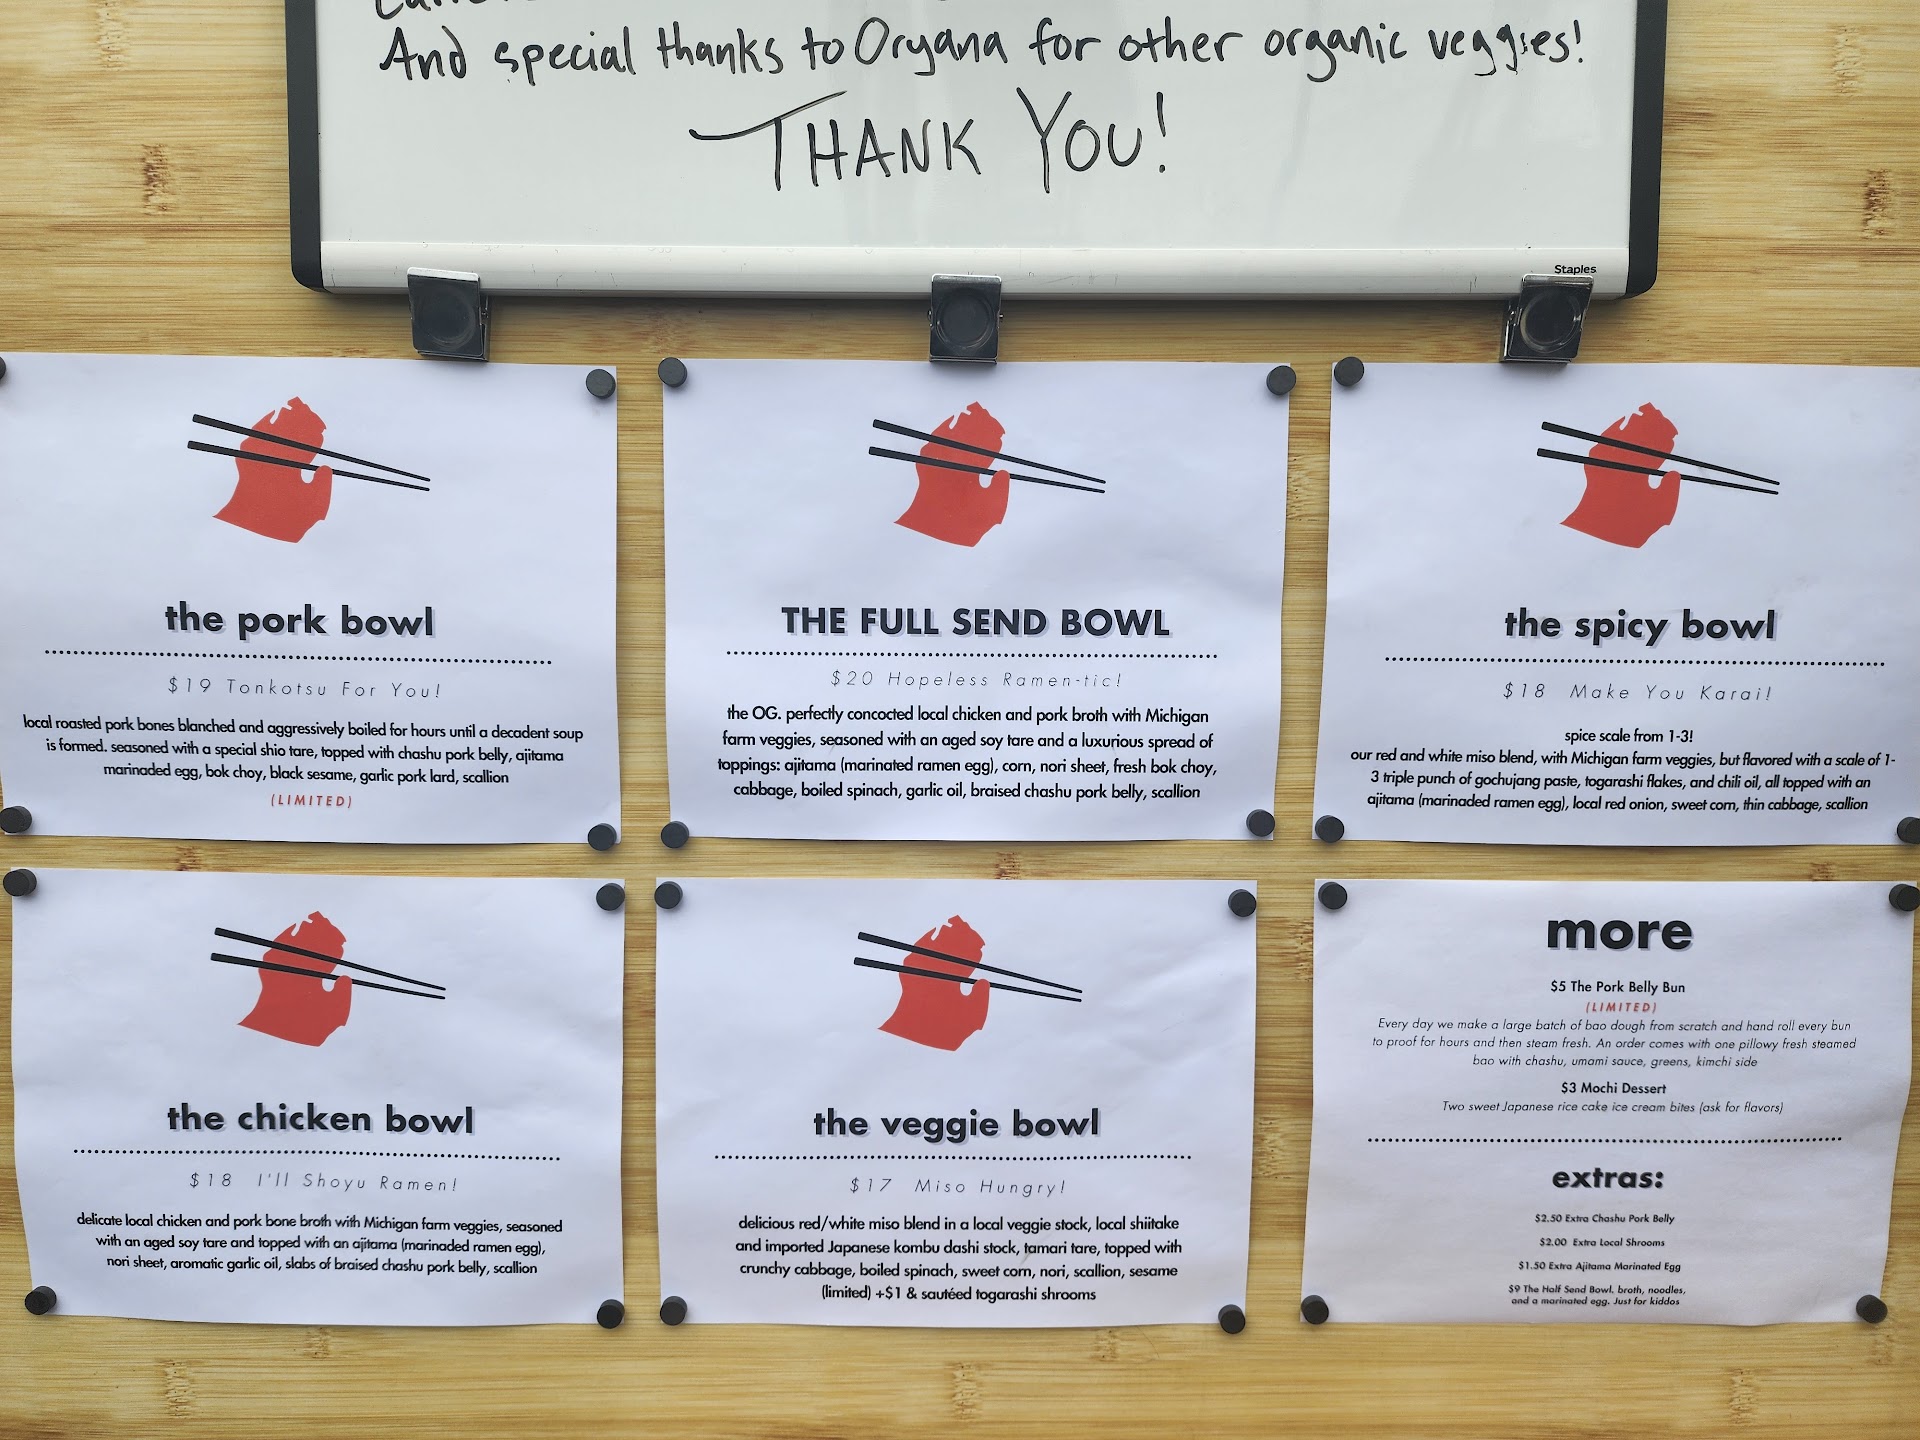 And special thanks to Oryana for other organic veggies!
THANK YOU!
Staples
the pork bowl
$19 Tonkotsu For You!
local roasted pork bones blanched and aggressively boiled for hours until a decadent soup
is formed. seasoned with a special shio tare, topped with chashu pork belly, ajitama
marinaded egg, bok choy, black sesame, garlic pork lard, scallion
(LIMITED)
THE FULL SEND BOWL
$20 Hopeless Ramen-tic!
the OG. perfectly concocted local chicken and pork broth with Michigan
farm veggies, seasoned with an aged soy tare and a luxurious spread of
toppings: ajitama (marinated ramen egg), corn, nori sheet, fresh bok choy,
cabbage, boiled spinach, garlic oil, braised chashu pork belly, scallion
the spicy bowl
$18 Make You Karai!
spice scale from 1-3!
our red and white miso blend, with Michigan farm veggies, but flavored with a scale of 1-
3 triple punch of gochujang paste, togarashi flakes, and chili oil, all topped with an
ajitama (marinaded ramen egg), local red onion, sweet corn, thin cabbage, scallion
the chicken bowl
$18 I'll Shoyu Ramen!
delicate local chicken and pork bone broth with Michigan farm veggies, seasoned
with an aged soy tare and topped with an ajitama (marinaded ramen egg),
nori sheet, aromatic garlic oil, slabs of braised chashu pork belly, scallion
the veggie bowl
$17 Miso Hungry!
delicious red/white miso blend in a local veggie stock, local shiitake
and imported Japanese kombu dashi stock, tamari tare, topped with
crunchy cabbage, boiled spinach, sweet corn, nori, scallion, sesame
(limited) +$1 & sautéed togarashi shrooms
more
$5 The Pork Belly Bun
(LIMITED)
Every day we make a large batch of bao dough from scratch and hand roll every bun
to proof for hours and then steam fresh. An order comes with one pillowy fresh steamed
bao with chashu, umami sauce, greens, kimchi side
$3 Mochi Dessert
Two sweet Japanese rice cake ice cream bites (ask for flavors)
extras:
$2.50 Extra Chashu Pork Belly
$2.00 Extra Local Shrooms
$1.50 Extra Ajitama Marinated Egg
$9 The Half Send Bowl, broth, noodles,
and a marinated egg. Just for kiddos